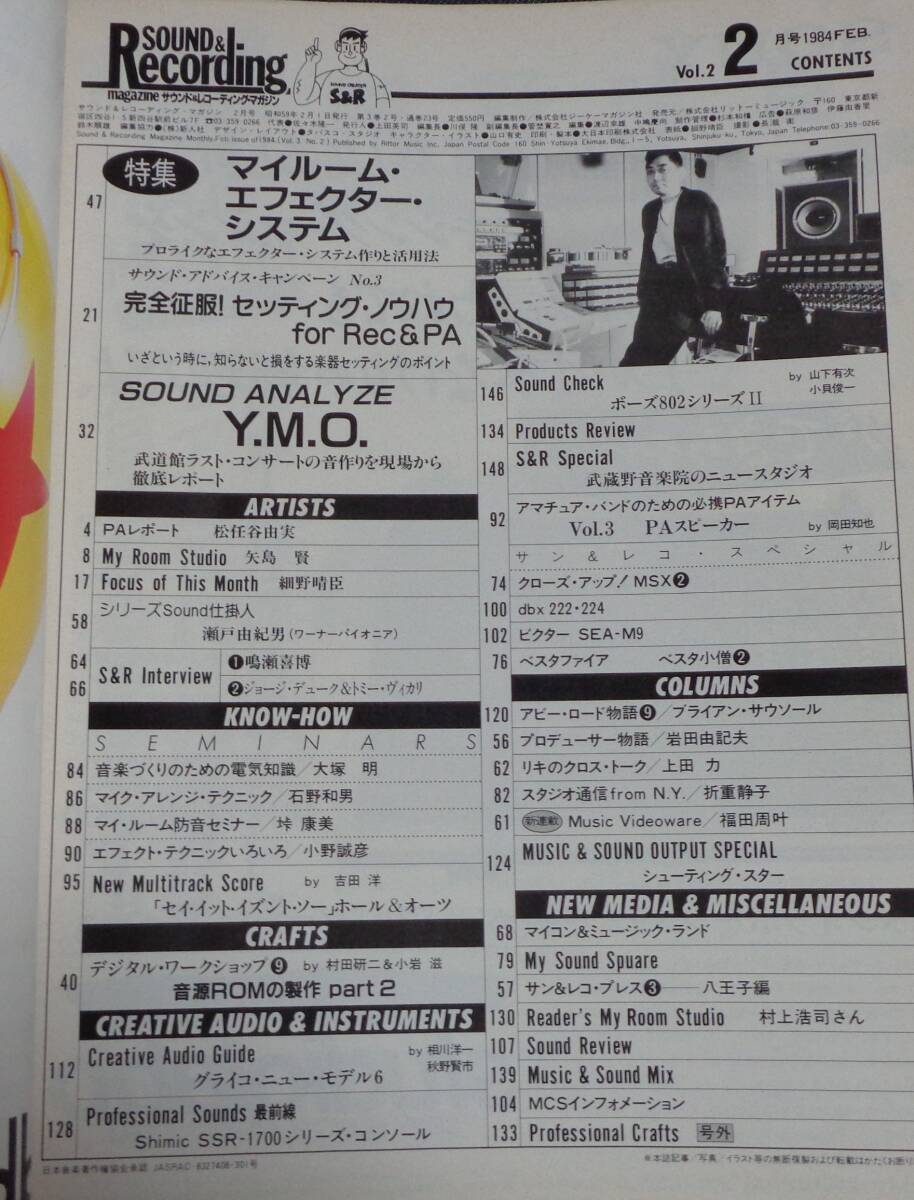 SOUND & Recording
magazine サウンド&レコーディング・マガジン
S&R
Vol.2 2 月号1984FEB.
CONTENTS
サウンド&レコーディング・マガジン 2月号 昭和59年2月1日発行 第3巻2号・通巻23号 定価550円 編集制作／株式会社ジーケーマガジン社 発売元／株式会社リットーミュージック 〒160 東京都新
宿区四谷1-5新四谷駅前ビル7F ☎03-359-0266
Sound & Recording Magazine Monthly.Feb. issue of1984.(Vol. 3 No. 2.) Published by Rittor Music Inc. Japan Postal Code 160 Shin-Yotsuya Ekimae, Bldg., 1-5, Yotsuya, Shinjuku ku, Tokyo, Japan Telephone:03-359-0266
特集
47 マイルーム・
エフェクター・
システム
プロライクなエフェクター・システム作りと活用法
サウンド・アドバイス・キャンペーン No.3
21 完全征服! セッティング・ノウハウ
for Rec&PA
いざという時に,知らないと損をする楽器セッティングのポイント
SOUND ANALYZE
32 Y.M.O.
武道館ラスト・コンサートの音作りを現場から
徹底レポート
ARTISTS
4 PAレポート 松任谷由実
8 My Room Studio 矢島 賢
17 Focus of This Month 細野晴臣
58 シリーズSound仕掛人
瀬戸由紀男(ワーナーパイオニア)
64 S&R Interview ❶鳴瀬喜博
66 ❷ジョージ・デューク&トミー・ヴィカリ
KNOW-HOW
SEMINARS
84 音楽づくりのための電気知識／大塚 明
86 マイク・アレンジ・テクニック／石野和男
88 マイ・ルーム防音セミナー／垰 康美
90 エフェクト・テクニックいろいろ／小野誠彦
95 New Multitrack Score by 吉田 洋
「セイ・イット・イズント・ソー」ホール&オーツ
CRAFTS
40 デジタル・ワークショップ❾ by 村田研二&小岩 滋
音源ROMの製作 part2
CREATIVE AUDIO & INSTRUMENTS
112 Creative Audio Guide by 相川洋一
秋野賢市
グライコ・ニュー・モデル6
128 Professional Sounds 最前線
Shimic SSR-1700シリーズ・コンソール
146 Sound Check by 山下有次
小貝俊一
ボーズ802シリーズII
134 Products Review
148 S&R Special
武蔵野音楽院のニュースタジオ
92 アマチュア・バンドのための必携PAアイテム
Vol.3 PAスピーカー by 岡田知也
サン&レコ・スペシャル
74 クローズ・アップ! MSX❷
100 dbx 222・224
102 ビクター SEA-M9
76 ベスタファイア ベスタ小僧❷
COLUMNS
120 アビー・ロード物語❾／ブライアン・サウソール
56 プロデューサー物語／岩田由記夫
62 リキのクロス・トーク／上田 力
82 スタジオ通信from N.Y.／折重静子
61 新連載 Music Videoware／福田周叶
124 MUSIC & SOUND OUTPUT SPECIAL
シューティング・スター
NEW MEDIA & MISCELLANEOUS
68 マイコン&ミュージック・ランド
79 My Sound Spuare
57 サン&レコ・プレス❸──八王子編
130 Reader's My Room Studio 村上浩司さん
107 Sound Review
139 Music & Sound Mix
104 MCSインフォメーション
133 Professional Crafts 号外
日本音楽著作権協会承認 JASRAC-8327408-301号
※本誌記事／写真／イラスト等の無断複製および転載はかたくお断り